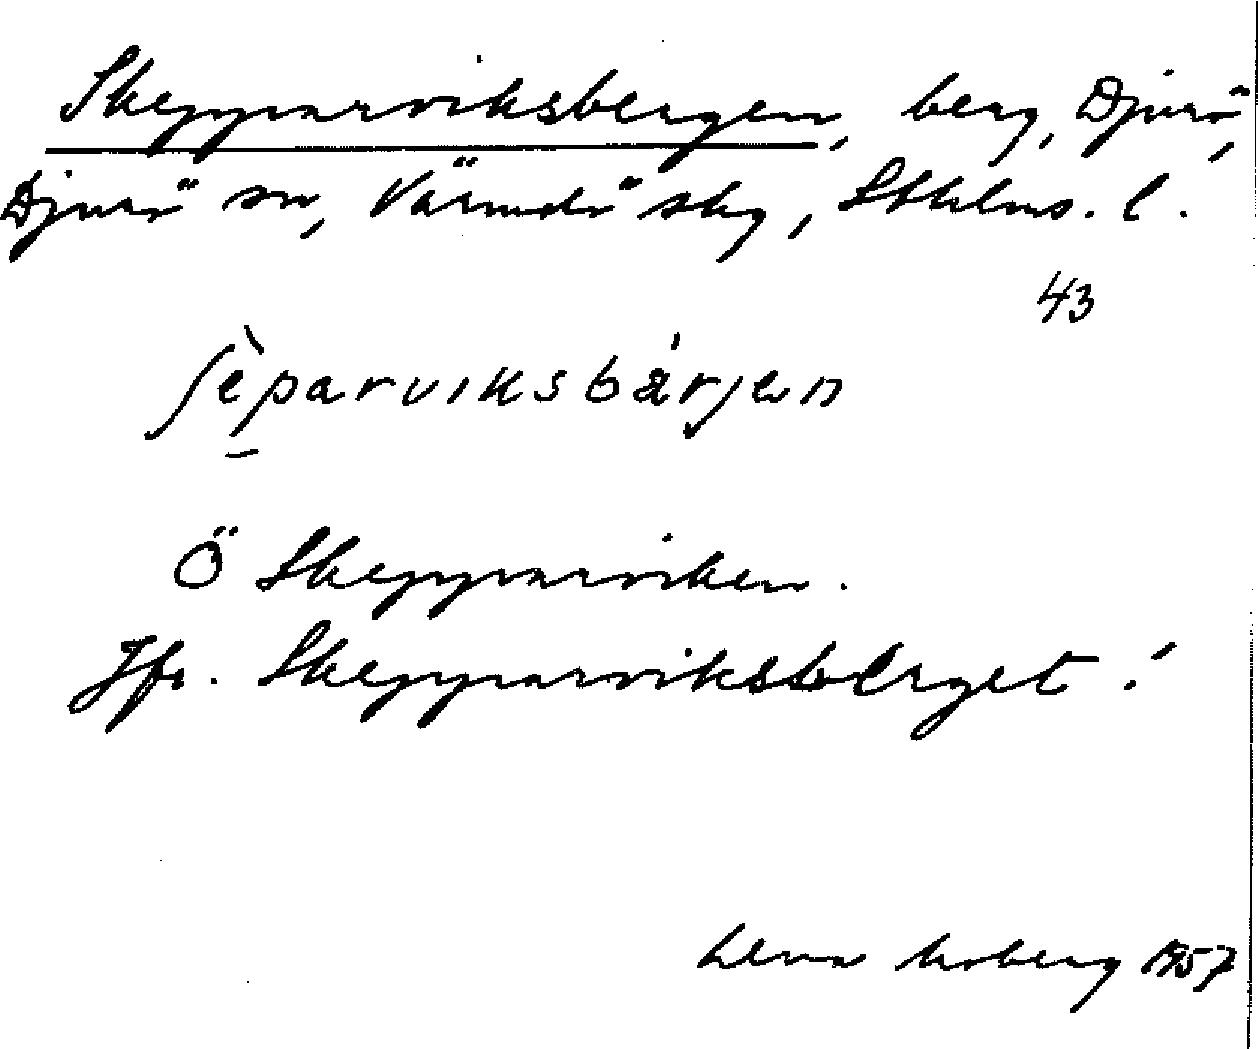 Skepparviksbergen, berg, Djurö,
Djurö sn, Värmdö skg, Sthlms. l.
43
ʃèparviksbárjen
Ö Skepparviken.
Jfr. Skepparviksberget!
Lena Moberg 1957